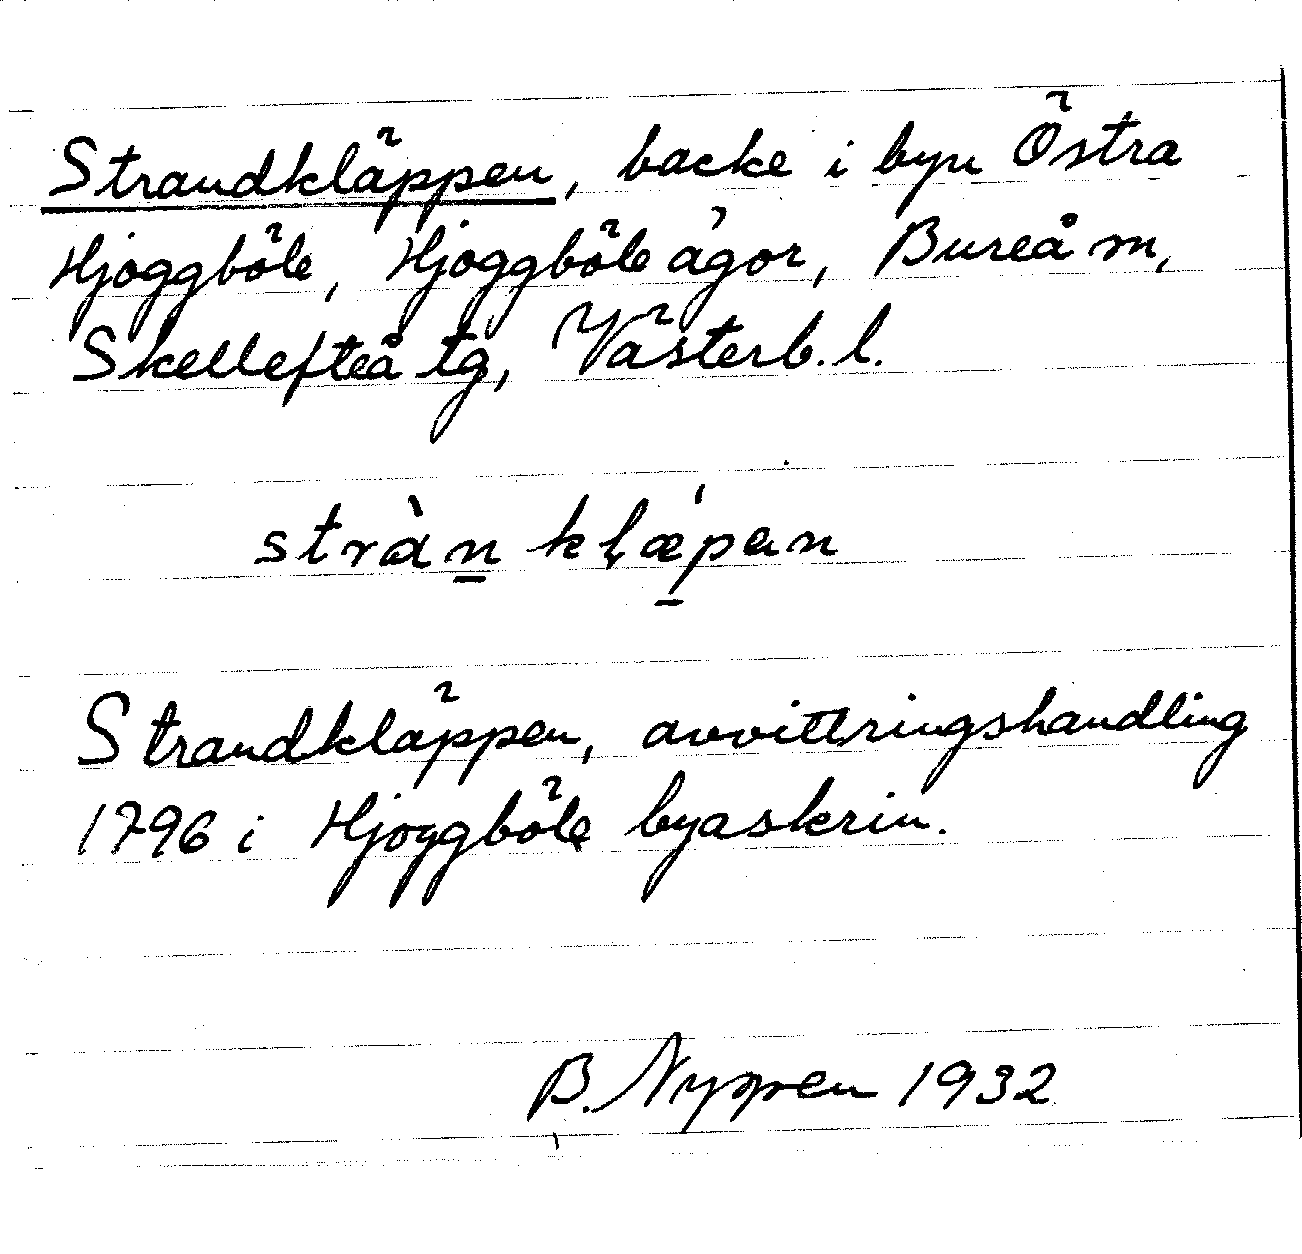 Strandkläppen, backe i byn Östra
Hjoggböle, Hjoggböle ägor, Bureå m,
Skellefteå tg, Västerb. l.
stràn̲ kḷǽp̲an
Strandkläppen, avvittringshandling
1796 i Hjoggböle byaskrin.
B. Nyppen 1932